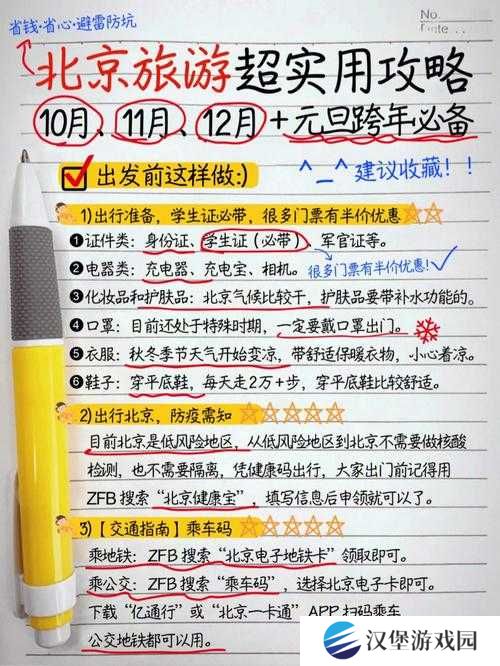 省钱·省心·避雷防坑
No.
北京旅游超实用攻略
10月、11月、12月+元旦跨年必备
出发前这样做:)
^_^建议收藏！！
1)出行准备，学生证必带，很多门票有半价优惠
❶证件类：身份证、学生证(必带)、军官证等。
❷电器类：充电器、充电宝、相机。
很多门票有半价优惠!
❸化妆品和护肤品：北京气候比较干，护肤品要带补水功能的。
❹口罩：目前还处于特殊时期，一定要戴口罩出门。
❺衣服：秋冬季节天气开始变凉，带舒适保暖衣物，小心着凉。
❻鞋子：穿平底鞋，每天走2万+步，穿平底鞋比较舒适。
2)出行北京，防疫需知
目前北京是低风险地区，从低风险地区到北京不需要做核酸
检测，也不需要隔离，凭健康码出行，大家出门前记得用
ZFB搜索“北京健康宝”，填写信息后申领就可以了。
3)【交通指南】乘车码
乘地铁：ZFB搜索“北京电子地铁卡”领取即可。
乘公交：ZFB搜索“乘车码”，选择北京电子卡即可。
下载“亿通行”或“北京一卡通”APP扫码乘车
公交地铁都可以用。
汉堡游戏园